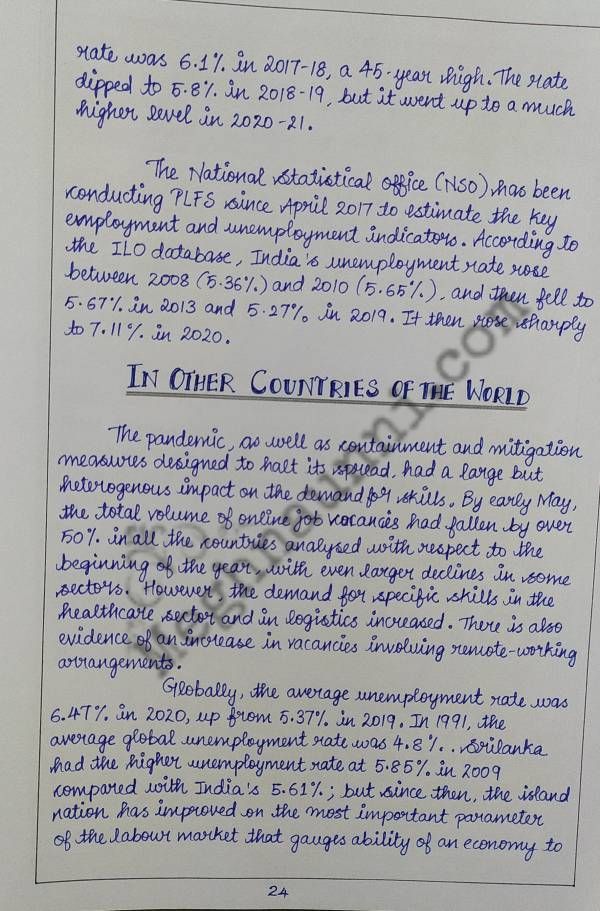 rate was 6.1% in 2017-18, a 45-year high. The rate
dipped to 5.8% in 2018-19, but it went up to a much
higher level in 2020-21.
The National Statistical office (NSO) has been
conducting PLFS since April 2017 to estimate the key
employment and unemployment indicators. According to
the ILO database, India's unemployment rate rose
between 2008 (5.36%) and 2010 (5.65%), and then fell to
5.67% in 2013 and 5.27% in 2019. It then rose sharply
to 7.11% in 2020.
IN OTHER COUNTRIES OF THE WORLD
The pandemic, as well as containment and mitigation
measures designed to halt its spread, had a large but
heterogenous impact on the demand for skills. By early May,
the total volume of online job vacancies had fallen by over
50% in all the countries analysed with respect to the
beginning of the year, with even larger declines in some
sectors. However, the demand for specific skills in the
healthcare sector and in logistics increased. There is also
evidence of an increase in vacancies involving remote-working
arrangements.
Globally, the average unemployment rate was
6.47% in 2020, up from 5.37% in 2019. In 1991, the
average global unemployment rate was 4.8%. . Srilanka
had the higher unemployment rate at 5.85% in 2009
compared with India's 5.61%; but since then, the island
nation has improved on the most important parameter
of the labour market that gauges ability of an economy to
24